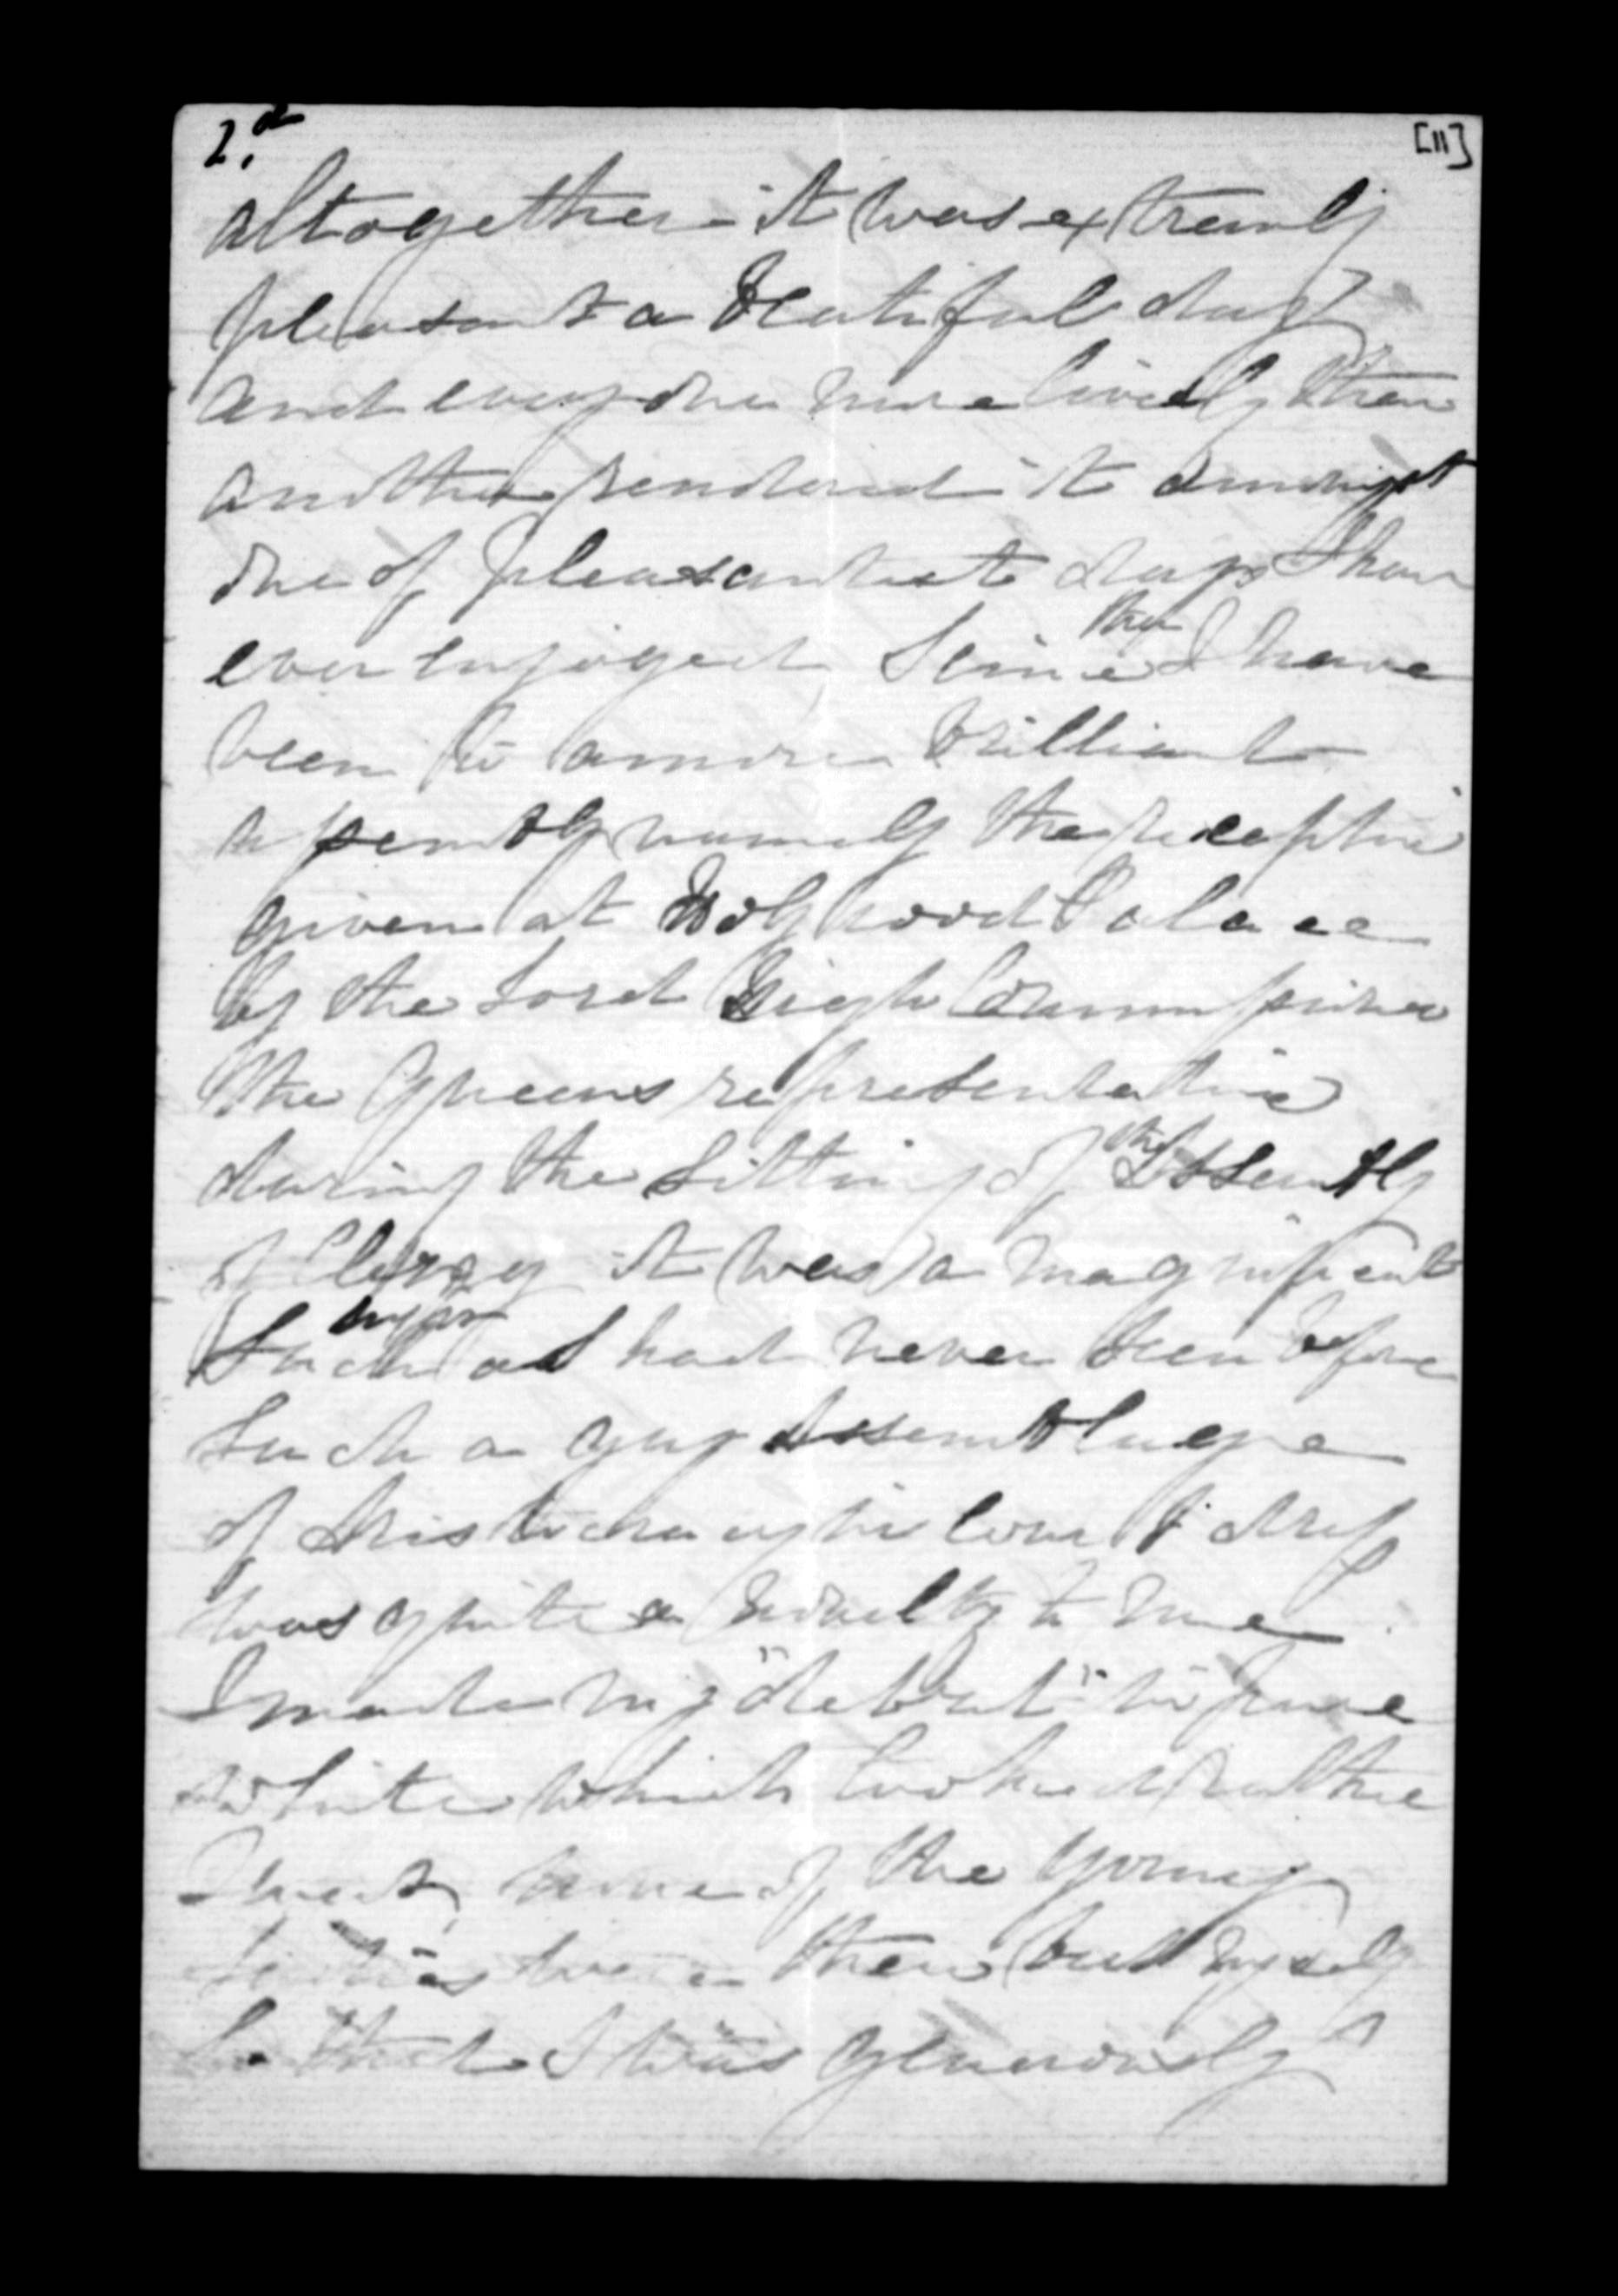 2.d
[11]
altogether it was extremly
pleasant a beatiful day
and every one more lively than
another rendered it amongst
one of pleasantest days I have
ever enjoyed, Since then I have
been to a more brilliant
assembly namely the reception
given at Holyrood Palace
by the Lord High Commissioner
the Queens representative
during the sitting of the Assembly
of Clergy it was a magnificent
such as I had never seen before
such a gay assemblage
of Aristocracy in court dress
was quite a novelty to me
I made my "debut" in pure
white which looked rather
neat, none of the young
ladies were there but myself
so that I was generously